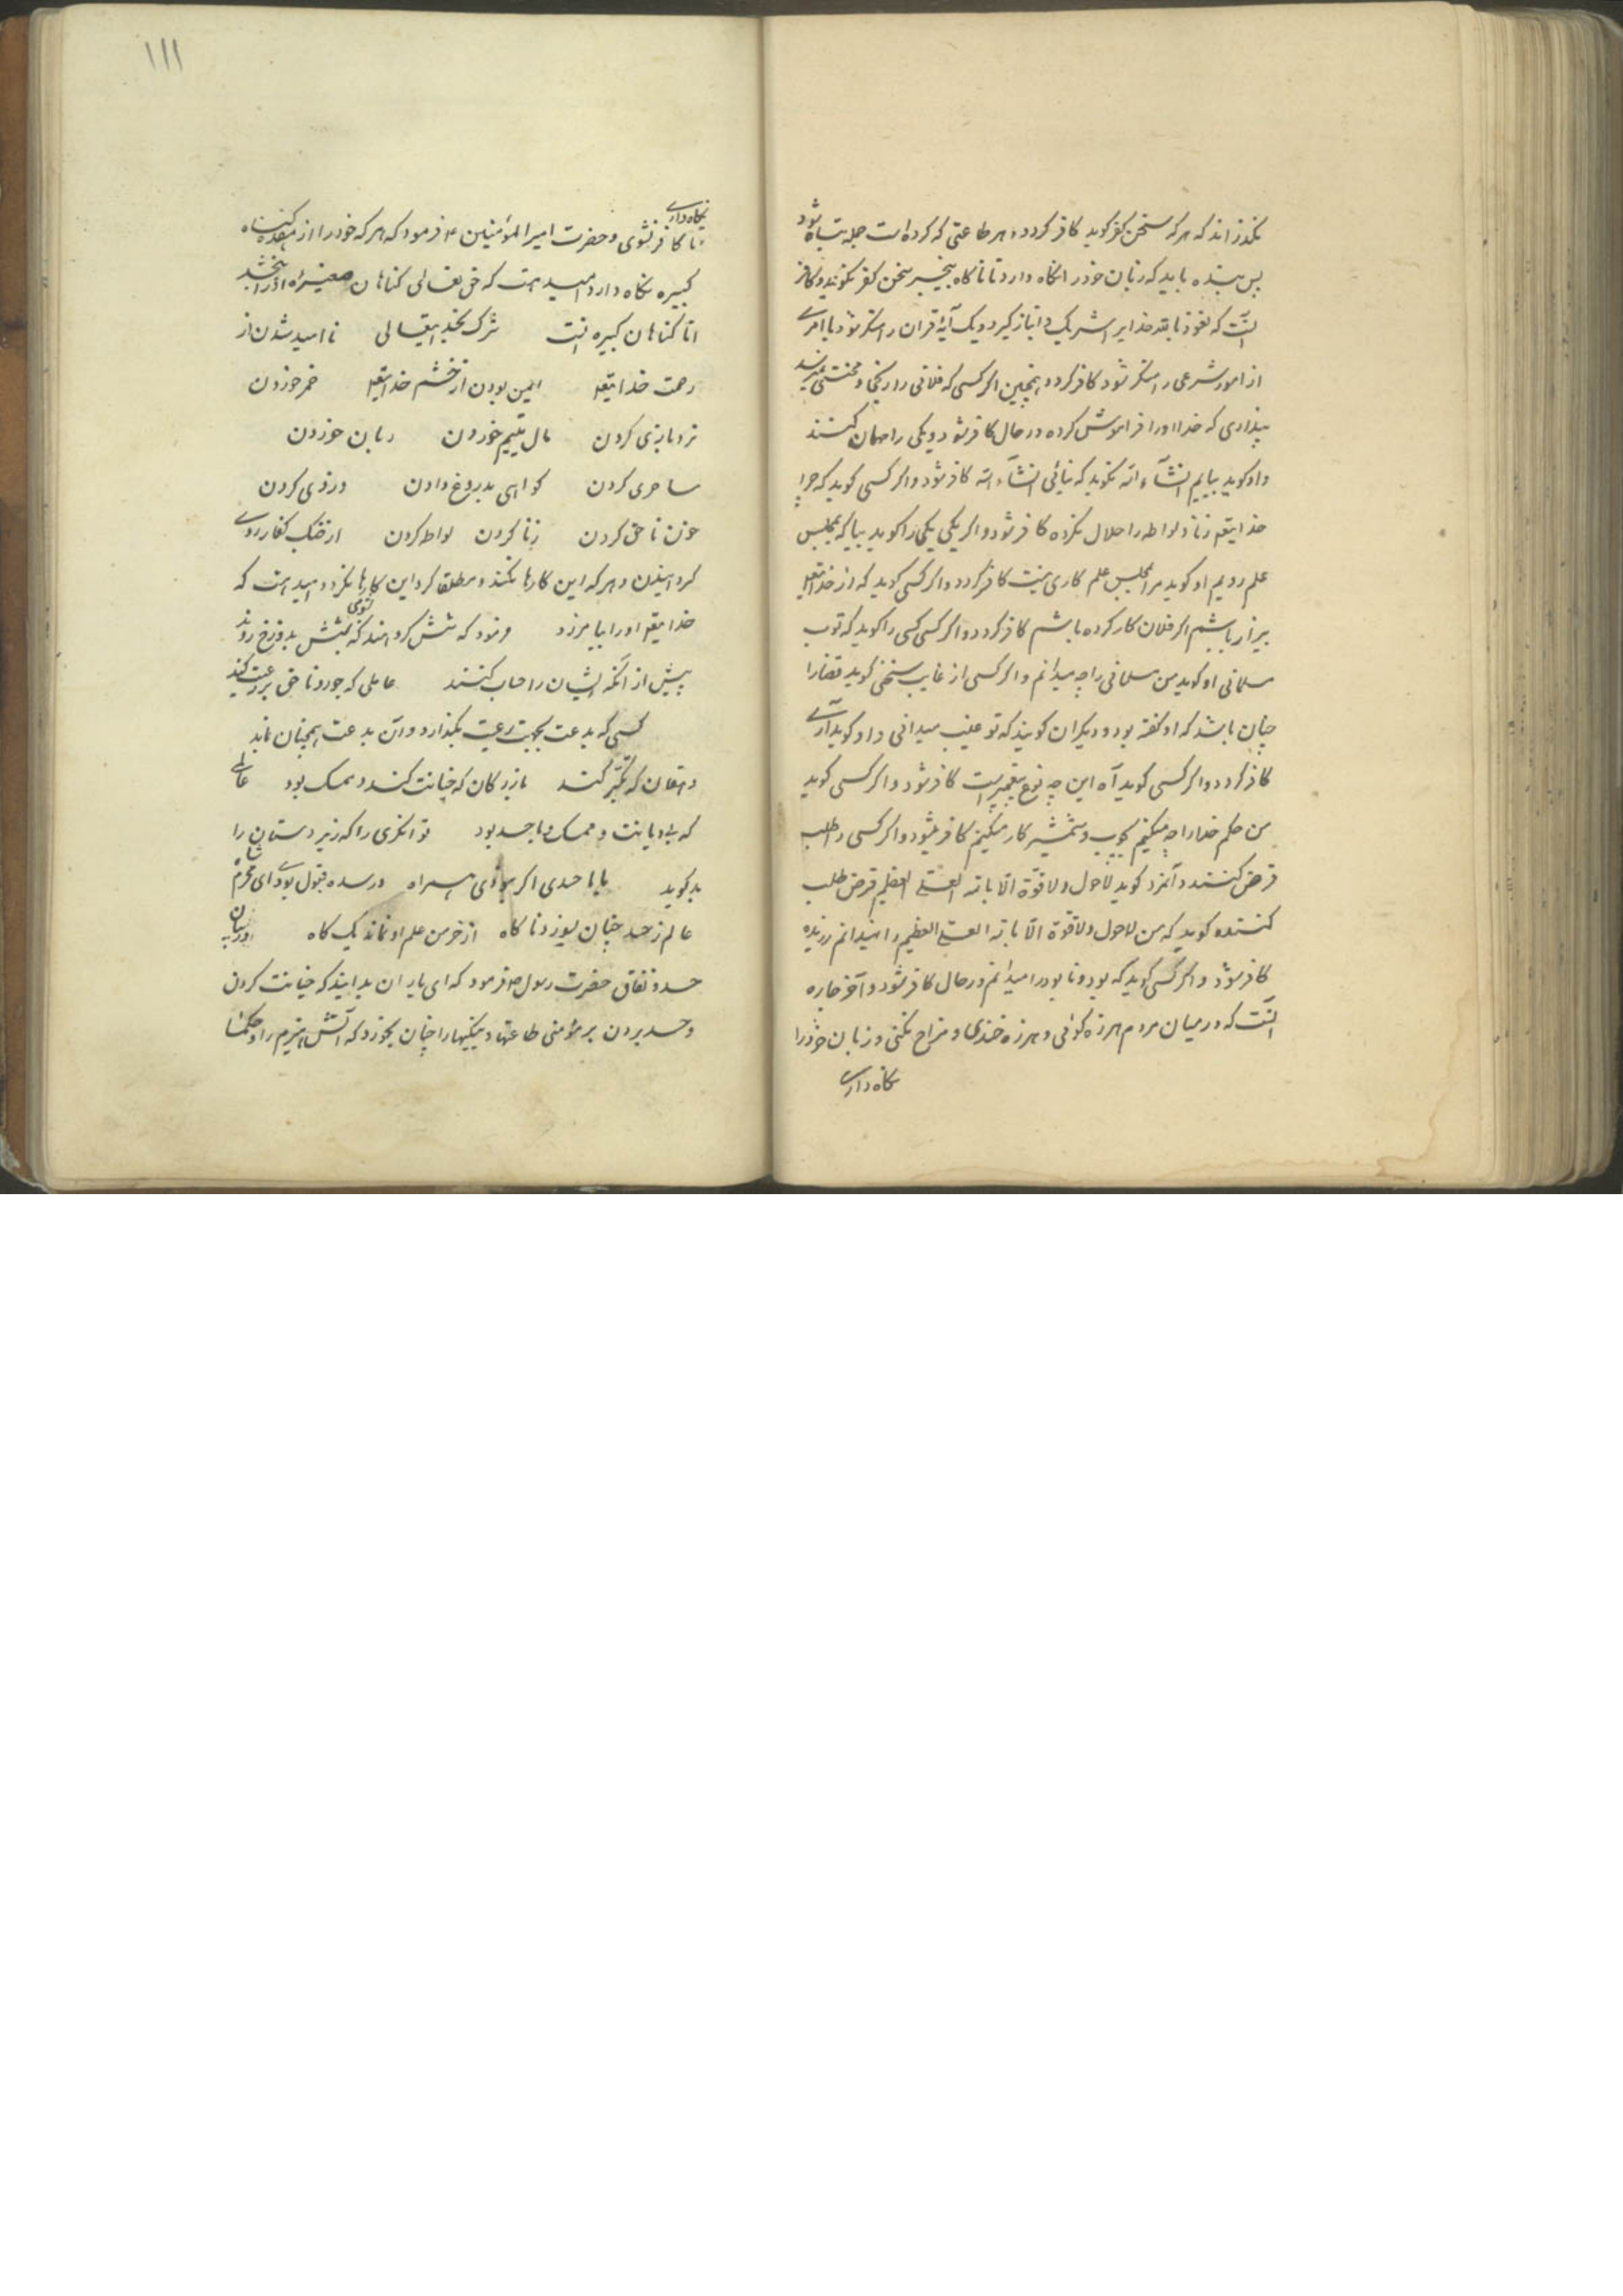 بگذراند که هر که سخن کفر گوید کافر گردد و هر طاعتی که کرده است جمله تباه شود
پس بنده باید که زبان خود را نگاه دارد تا ناگاه بیخبر سخن کفر نگوید و کافر
آنست که نعوذ بالله خدایرا شریک و انباز گیرد و یک آیهٔ قران را منکر شود یا امری
از امور شرعی را منکر شود کافر گردد همچنین اگر کسی که فلانی را رنج و محنتی نمیرسد
پنداری که خدا او را فراموش کرده در حال کافر شود و یکی را مهمان کنند
و او گوید بیایم انشآء الله نگوید که نیائی انشآء الله کافر شود و اگر کسی گوید که چرا
خدایتعا زنا و لواطه را حلال نکرده کافر شود و اگر یکی یکی را گوید بیا که بمجلس
علم رویم او گوید مرا بمجلس علم کاری نیست کافر گردد و اگر کسی گوید که از خدایتعا
بیزار باشم اگر فلان کار کرده باشم کافر گردد و اگر کسی کسی را گوید که توب
مسلمانی او گوید من مسلمانی را چه میدانم و اگر کسی از غایب سخنی گوید قضارا
چنان باشد که او گفته بود و دیگران گویند که تو غیب میدانی و او گوید آری
کافر گردد و اگر کسی گوید آه این چه نوع پیغمبریست کافر شود و اگر کسی گوید
من حکم خدا را چه میکنم بچوب و شمشیر کار میکنم کافر میشود و اگر کسی را طلب
قرض کنند و آنمرد گوید لاحول ولا قوّة الّا بالله العلی العظیم قرض طلب
کننده گوید که من لاحول ولا قوّة الّا بالله العلی العظیم را نمیدانم زر بده
کافر شود و اگر کسی گوید که بود و نابود را میدانم در حال کافر شود و آخر چاره
آنست که در میان مردم هرزه گوئی و هرزه خندی و مزاح نکنی و زبان خود را
نگاه داری
۱۱۱
نگاه داری
تا کافر نشوی و حضرت امیر المؤمنین ع فرمود که هر که خود را از هفده گناه
کبیره نگاه دارد امید هست که حق تعالی گناهان صغیره او را ببخشد
امّا گناهان کبیره اینست شرک بخدایتعالی نا امید شدن از
رحمت خدایتعا ایمن بودن از خشم خدایتعا خمر خوردن
نرد بازی کردن مال یتیم خوردن ربا خوردن
ساحری کردن گواهی بدروغ دادن دزدی کردن
خون ناحق کردن زنا کردن لواطه کردن از جنگ کفار روی
گردانیدن و هر که این کارها نکند و مطلقا گرد این کارها نگردد امید هست که
خدایتعا او را بیامرزد و فرمود که شش گروهند که بشش بدوزخ روند
پیش از آنکه ایشان را حساب کنند عاملی که جور و ناحق بر رعیت کند
کسی که بدعت بجهت رعیت بگذارد و آن بدعت همچنان بماند
دهقان که تکبّر کند بازرگان که خیانت کند و ممسک بود عالمی
که بی دیانت و ممسک و با حسد بود توانگری را که زیردستان را
بد گوید با حسدی اگر بودی همراه در سده قبول بودی محرم شاه
عالم ز حسد چنان بسوزد ناگاه از خرمن علم او نماند یک گاه در بیان
حسد و نفاق حضرت رسول ص فرمود که ای یاران بدانید که خیانت کردن
و حسد بردن بر مؤمنی طاعتها و نیکیها را چنان بخورد که آتش هیزم را و حکما